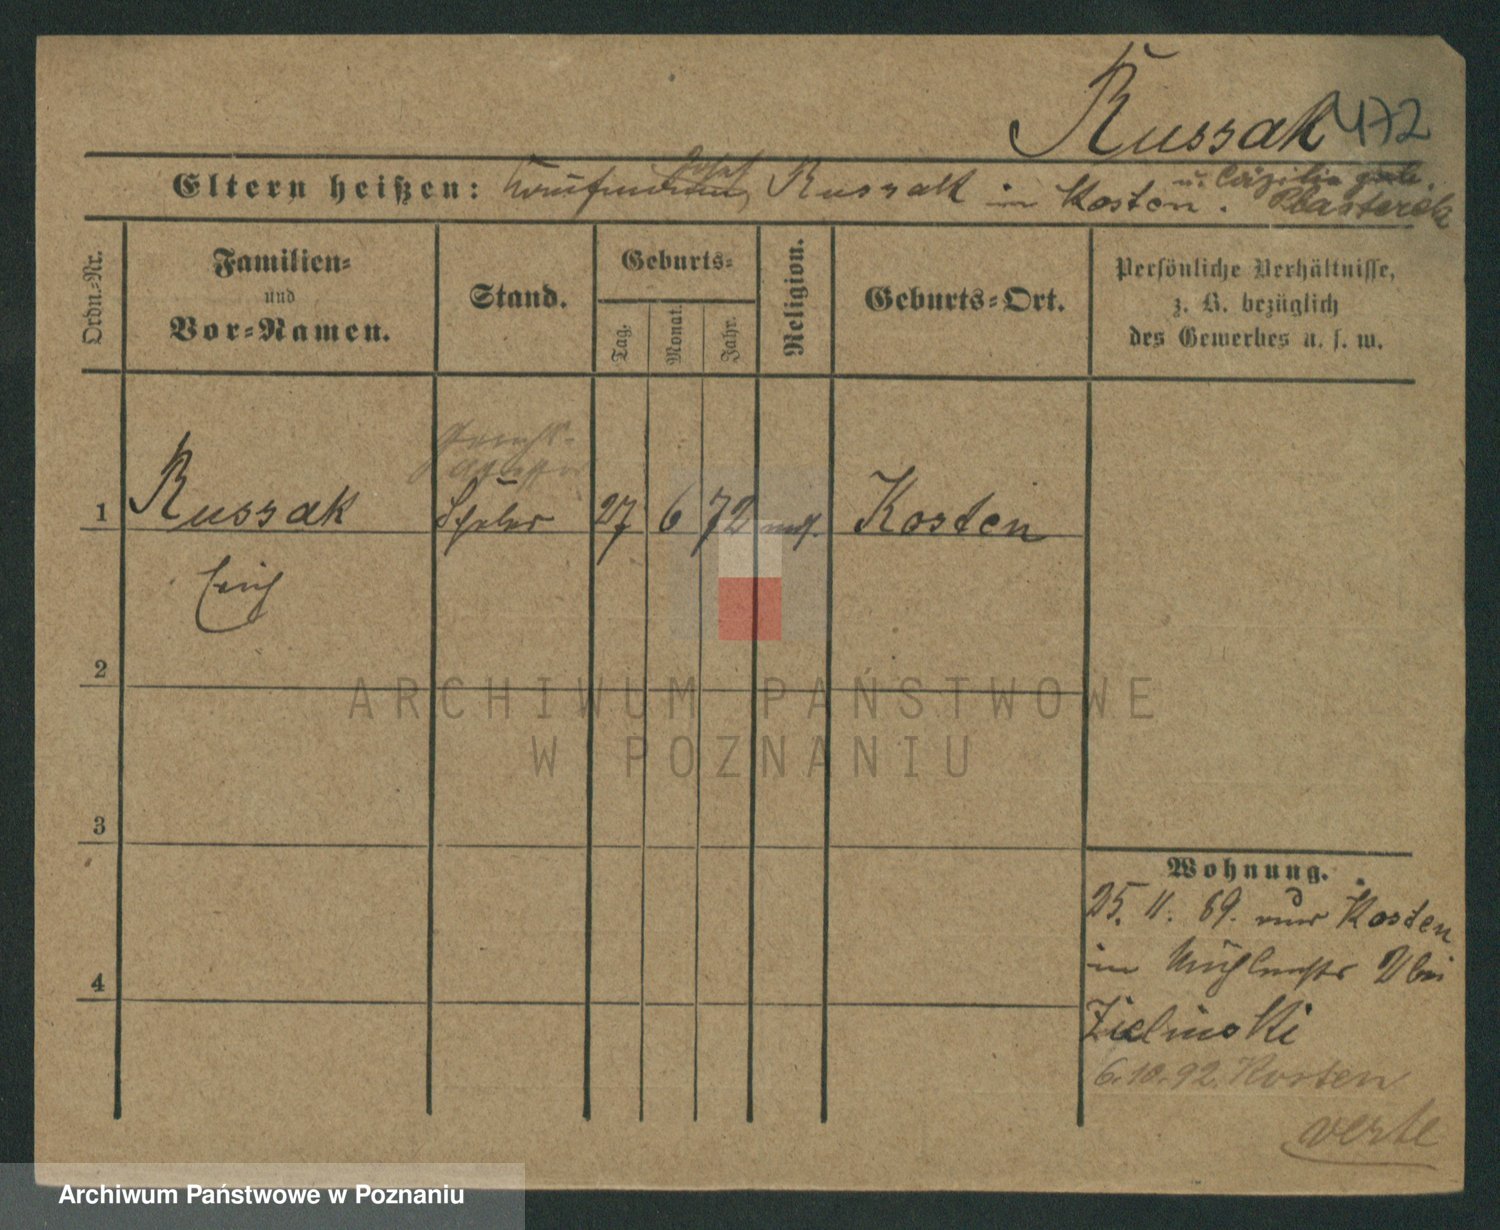 Russak 472
u. Cäzilie geb.
Eltern heißen: Kaufmann, Russak in Kosten. Plasterek
Ordn.-Nr.
Familien-
und
Vor-Namen.
Stand.
Geburts-
Tag.
Monat.
Jahr.
Religion.
Geburts-Ort.
Persönliche Verhältnisse,
z. B. bezüglich
des Gewerbes u. s. w.
1 Russak Schüler 27 6 72 mos. Kosten
Erich
2
ARCHIWUM PAŃSTWOWE
W POZNANIU
3
Wohnung.
25. 11. 89. von Kosten
in Mühlenstr 2 bei
4
Zielinski
6.10.92. Kosten
verte
Archiwum Państwowe w Poznaniu